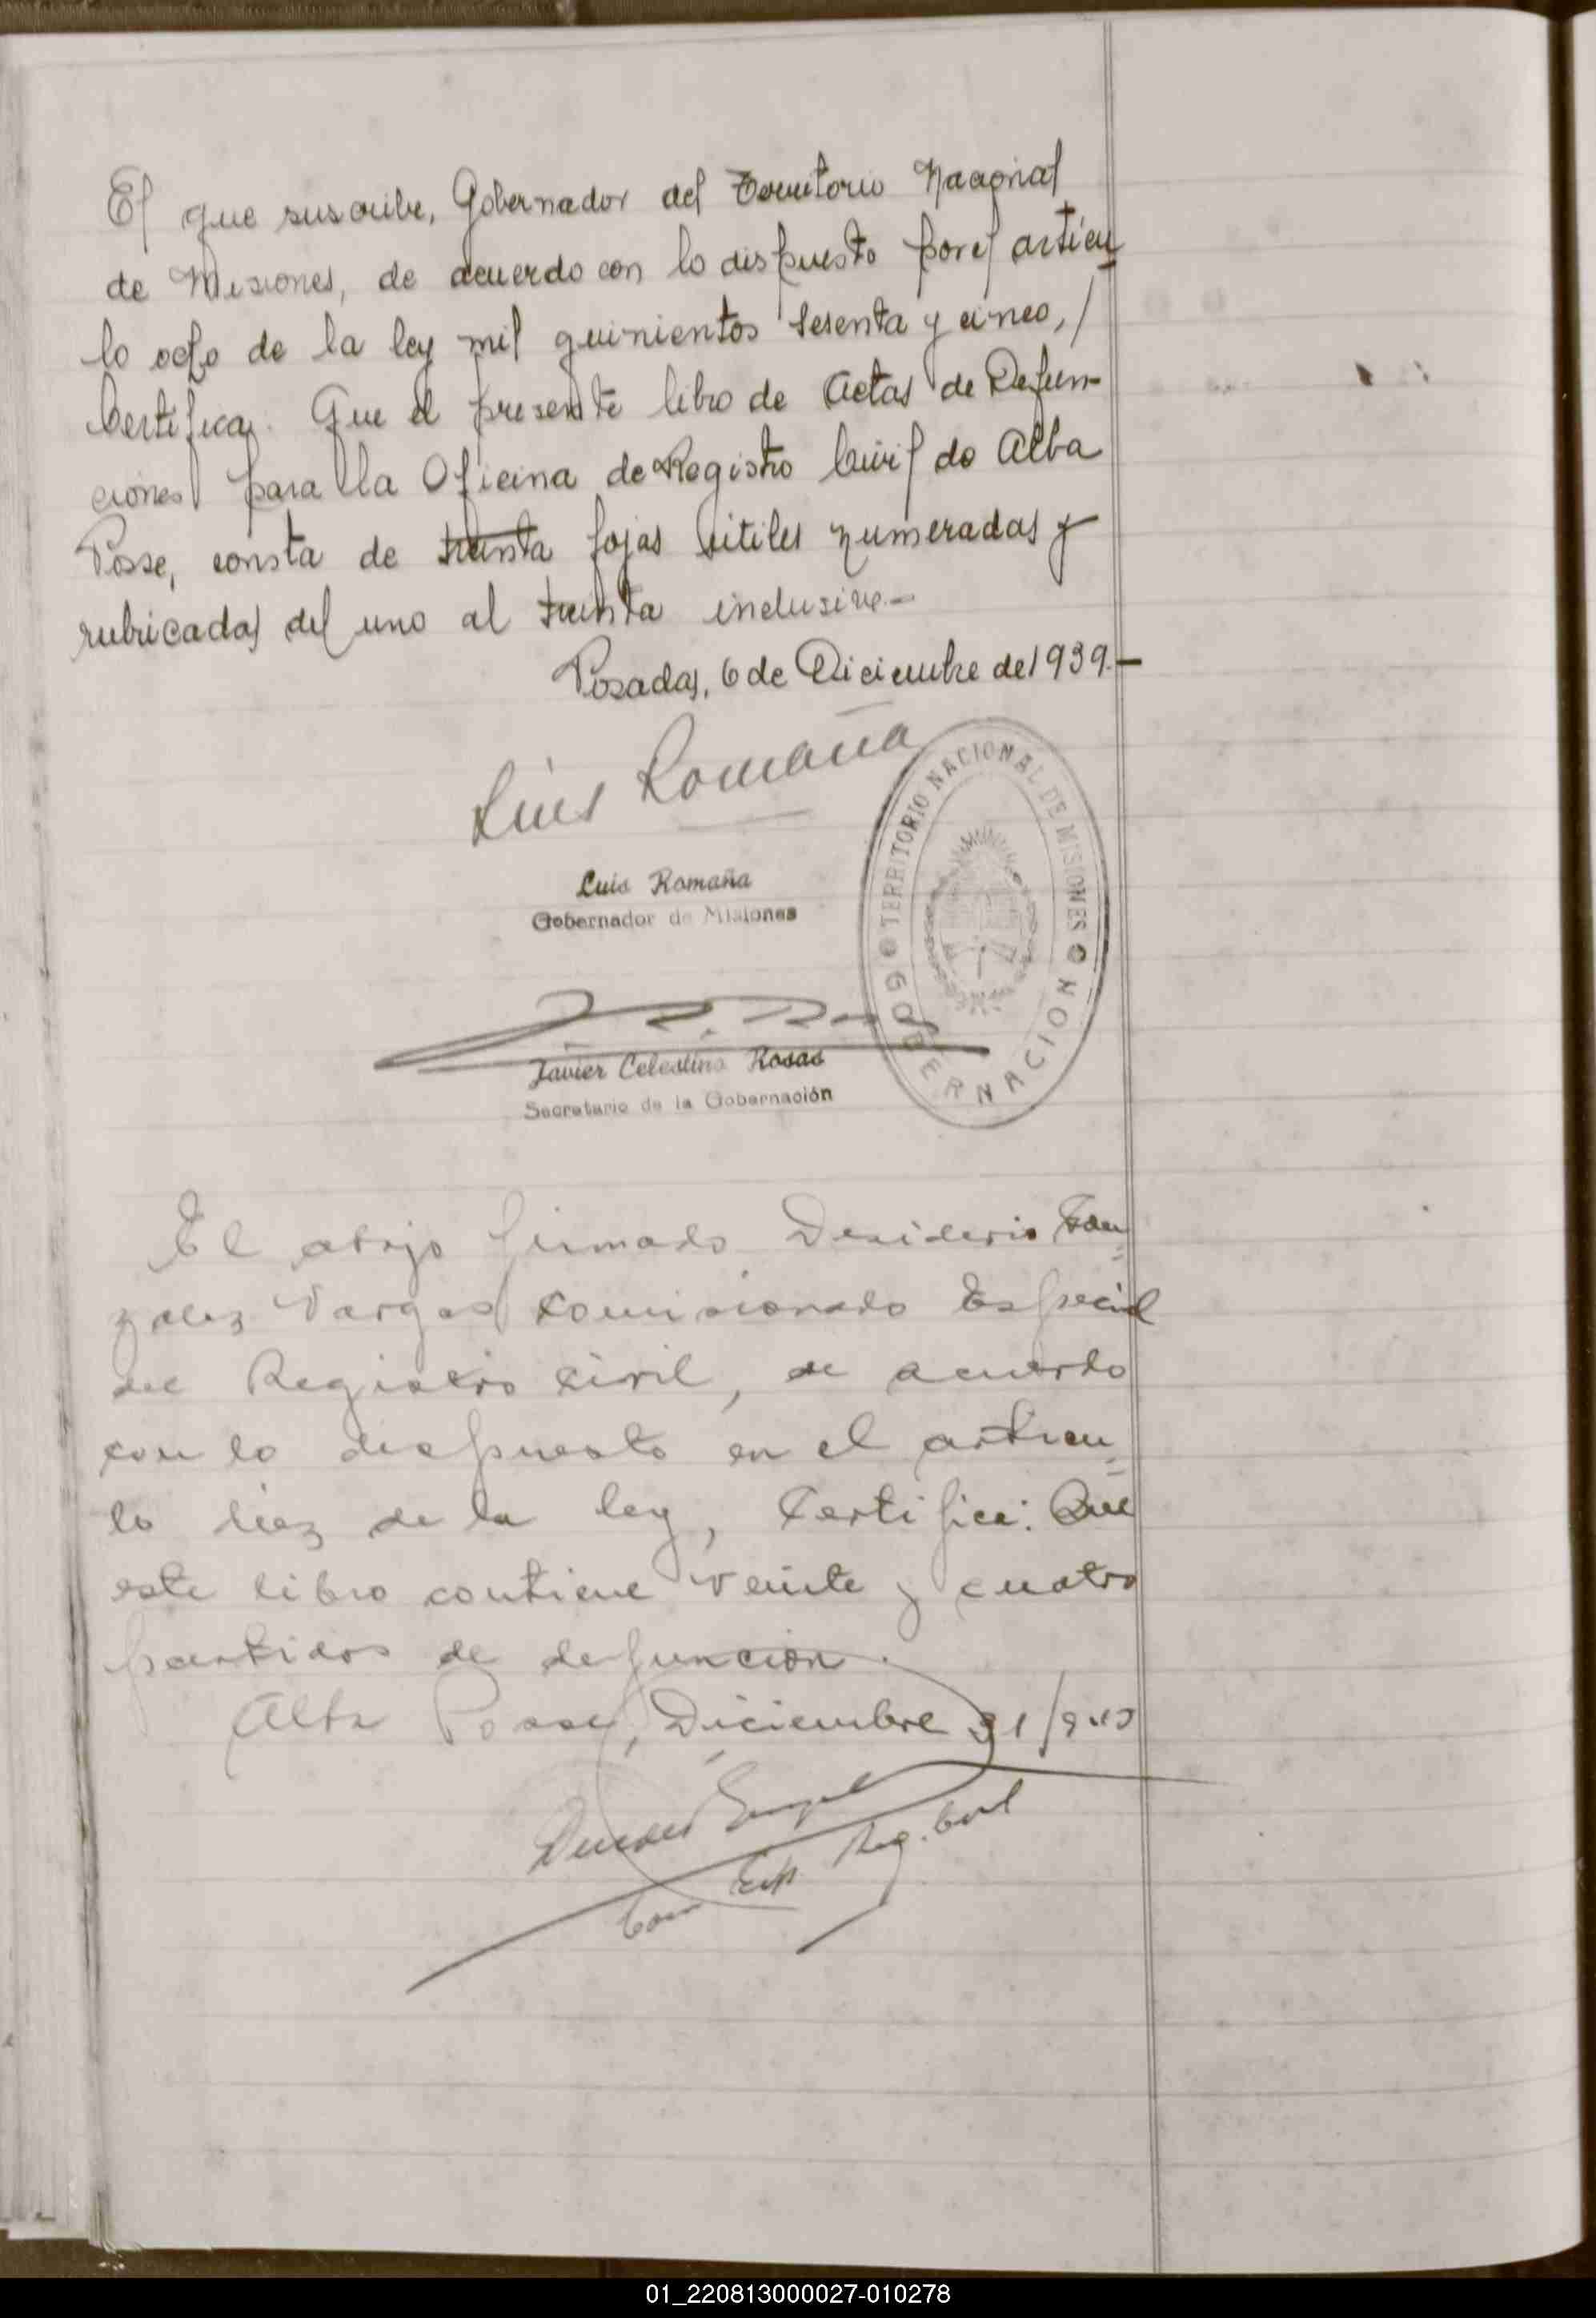 El que suscribe, Gobernador del Territorio Nacional
de Misiones, de acuerdo con lo dispuesto por el artícu
lo ocho de la ley mil quinientos sesenta y cinco, /
Certifica: Que el presente libro de Actas de Defun-
ciones para la Oficina de Registro Civil de Alba
Posse, consta de treinta fojas útiles numeradas y
rubricadas del uno al treinta inclusive.-
Posadas, 6 de Diciembre de 1939.-
Luis Romaña
Luis Romaña
Gobernador de Misiones
TERRITORIO NACIONAL DE MISIONES
GOBERNACION
Javier Celestino Rosas
Secretario de la Gobernación
El abajo firmado Desiderio
Vargas Comisionado Especial
del Registro Civil, de acuerdo
con lo dispuesto en el artícu=
lo diez de la ley, Certifica: Que
este libro contiene veinte y cuatro
partidas de defunción.
Alba Posse, Diciembre 31/940
Com Esp Reg. Civil
01_220813000027-010278